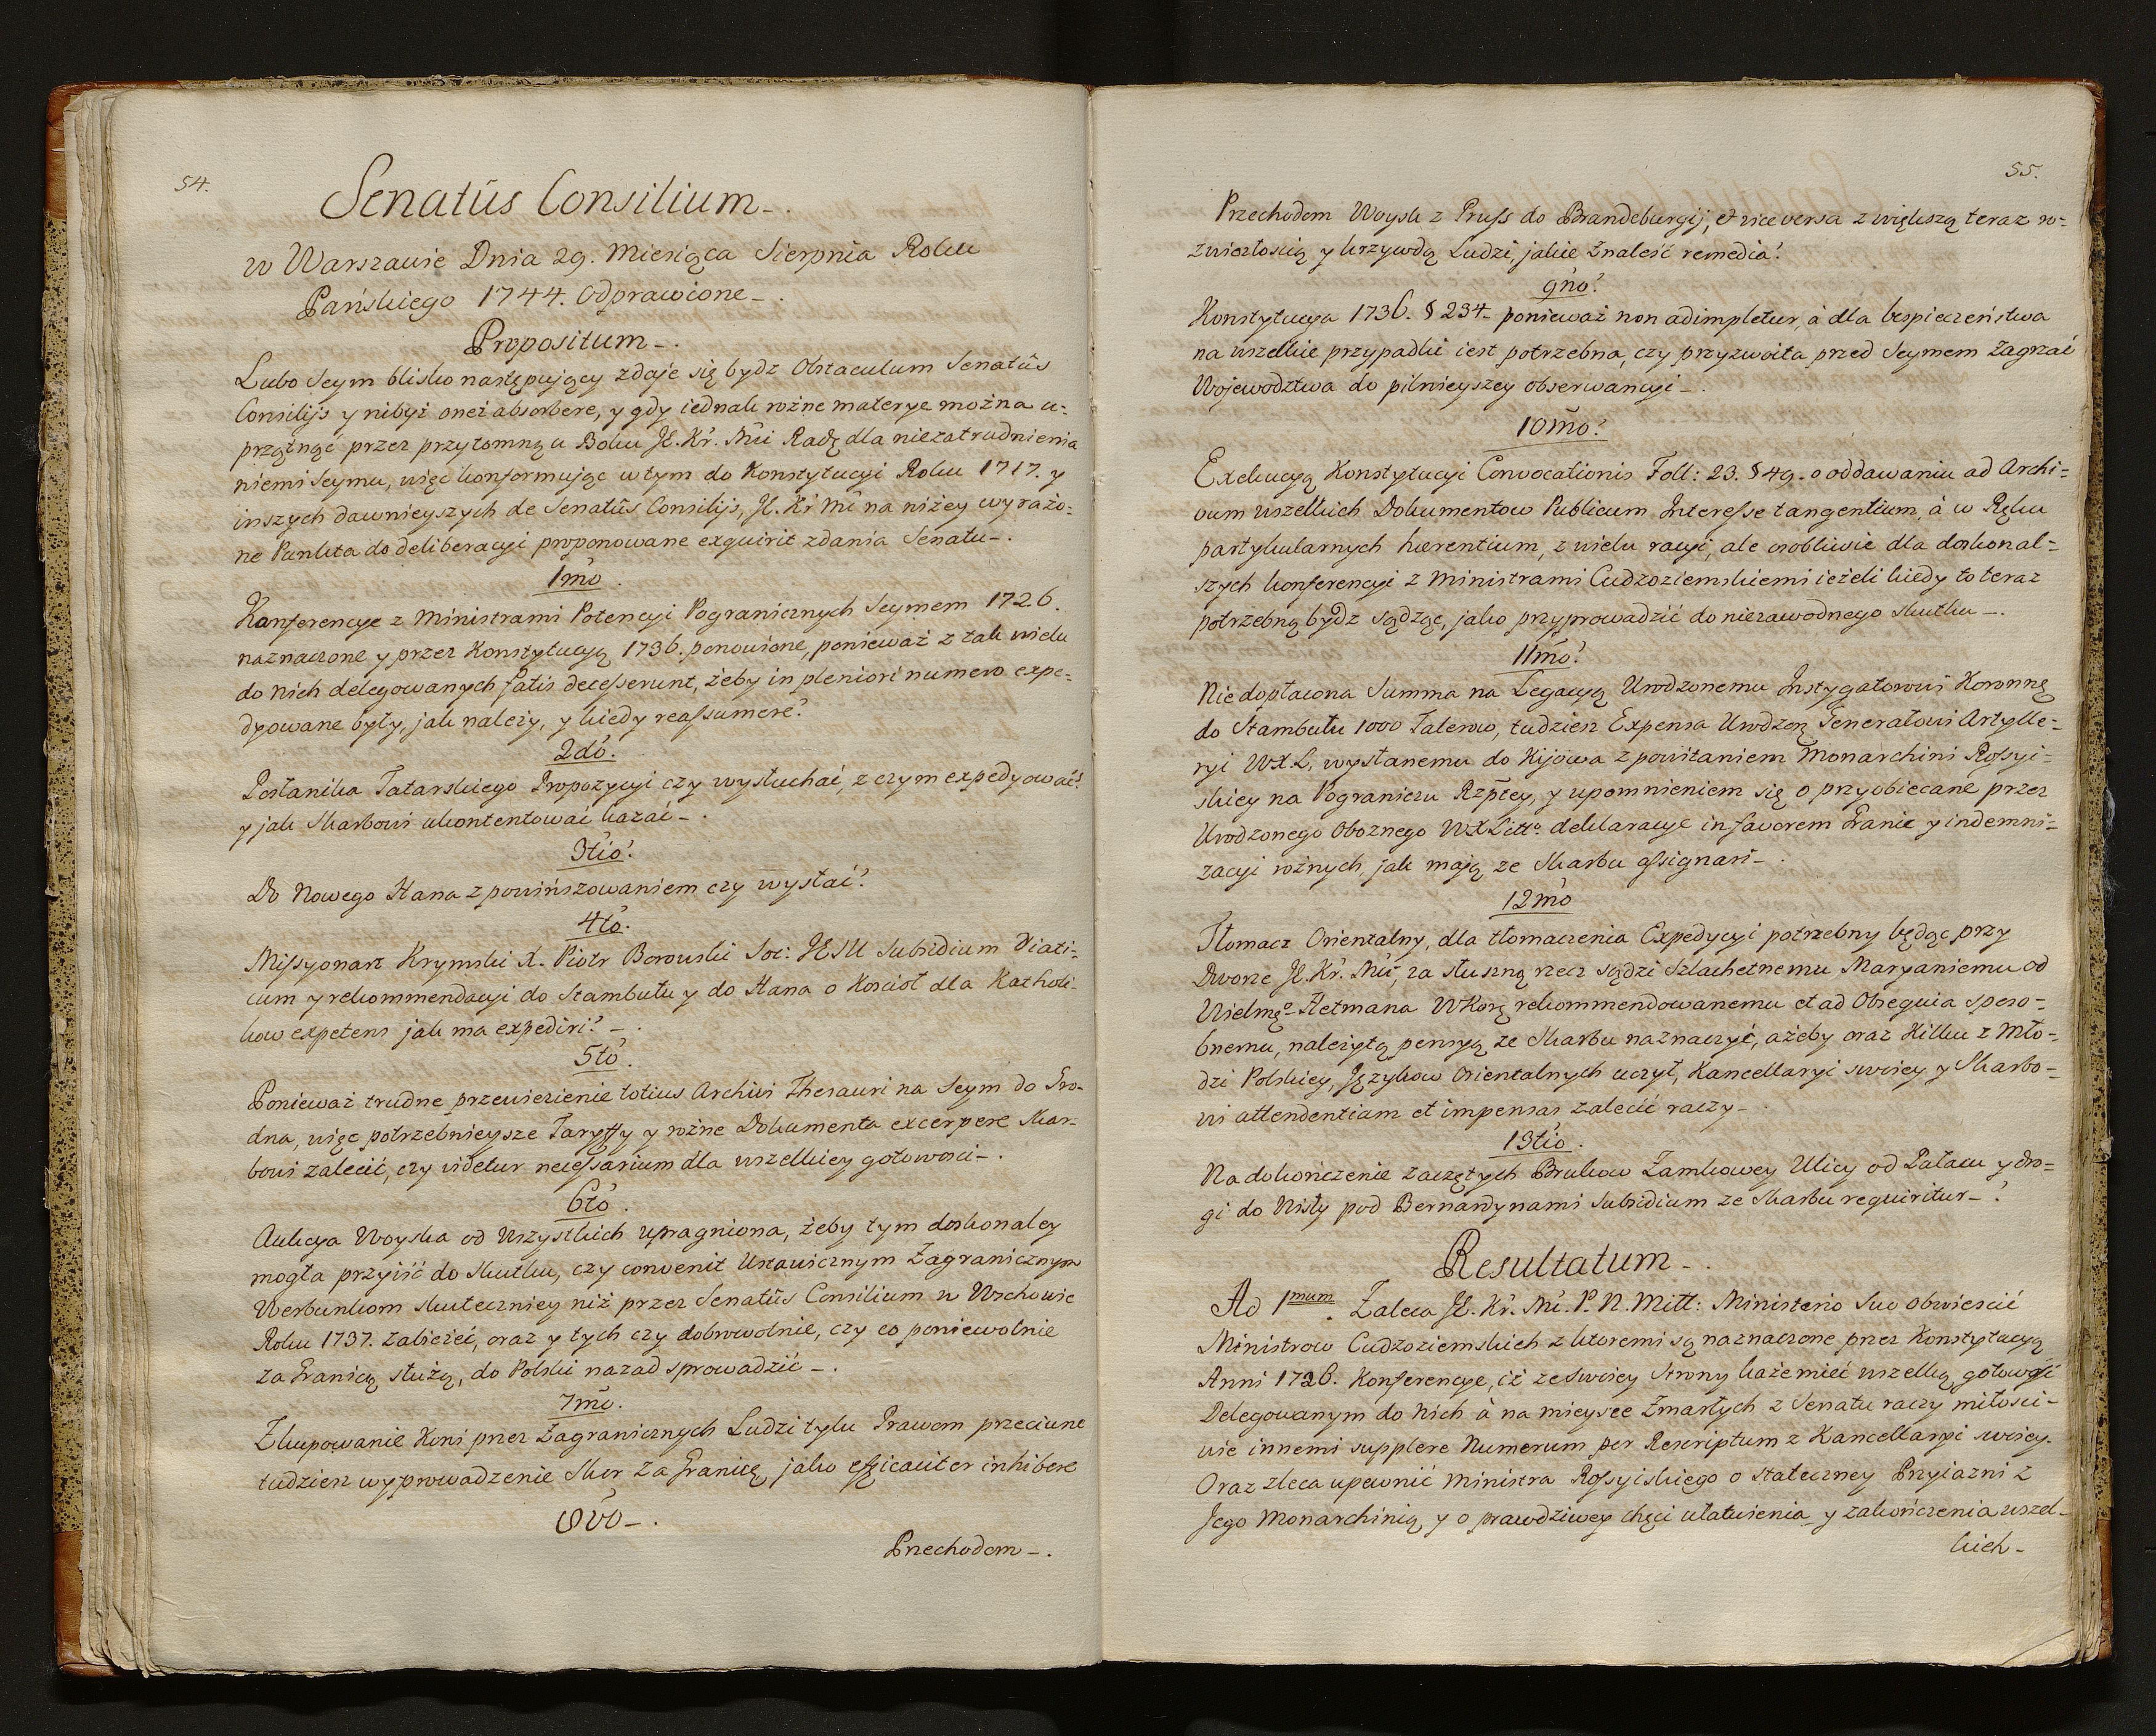 54.
Senatûs Consilium_.
w Warszawie Dnia 29. Miesiąca Sierpnia Roku
Pańskiego 1744. Odprawione_.
Propositum_.
Lubo Seym blisko następujący zdaje się bydz Obstaculum Senatûs
Consilijs y nibyż oneż absorbere, y gdy iednak rożne materye można u=
przątnąć przez przytomną u Boku JK. Kr̃. Mci Radę dla niezatrudnienia
niemi Seymu, więc konformując w tym do Konstytucyi Roku 1717. y
inszych dawnieyszych de Senatûs Consilijs, JK. Kr̃ Mć na niżey wyrażo=
ne Punkta do deliberacyi proponowane exquirit zdania Senatu_.
1mo.
Konferencye z Ministrami Potencyi Pogranicznych Seymem 1726.
naznaczone y przez Konstytucyą 1736. ponowione, ponieważ z tak wielu
do nich delegowanych fatis decesserunt, żeby in pleniori numero expe=
dyowane były, jak należy, y kiedy reassumere?
2do.
Posłanika Tatarskiego Propozycyi czy wysłuchać, z czym expedyować?
y jak Skarbowi ukontentować kazać_.
3tio.
Do Nowego Hana z powinszowaniem czy wysłać?
4to.
Missyonarz Krymski X. Piotr Borowski Soc: JESU Subsidium Viati=
cum y rekommendacyi do Stambułu y do Hana o Kościoł dla Katholi=
kow expetens jak ma expediri?_.
5to.
Ponieważ trudne przewiezienie totius Archivi Thesauri na Seym do Gro=
dna, więc potrzebnieysze Taryffy y rożne Dokumenta excerpere Skar=
bowi zalecić, czy videtur necessarium dla wszelkiey gotowości_.
6to.
Aukcya Woyska od Wszystkich upragniona, żeby tym doskonaley
mogła przyiść do skutku, czy convenit Ustawicznym Zagranicznym
Werbunkom skuteczniey niż przez Senatûs Consilium w Wschowie
Roku 1737. zabieżeć, oraz y tych czy dobrowolnie, czy co poniewolnie
za Granicą służą, do Polski nazad sprowadzić_.
7mo.
Zkupowanie Koni przez Zagranicznych Ludzi tylu Prawom przeciwne
tudziesz wyprowadzenie Skor za Granicę, jako efficaciter inhibere
8vo_.
Przechodom_.
55.
Przechodom Woysk z Pruss do Brandeburgij, et vice versa z większą teraz ro=
zwiozłością y krzywdą Ludzi, jakie znaleść remedia?
9no.
Konstytucya 1736. § 234_ ponieważ non adimpletur, à dla bespieczeństwa
na wszelkie przypadki iest potrzebna, czy przyzwoita przed Seymem zagrzać
Wojewodztwa do pilnieyszey obserwancyi_.
10mo.
Exekucyą Konstytucyi Convocationis Foll: 23. § 49. o oddawaniu ad Archi=
vum wszelkich Dokumentow Publicum Interesse tangentium, à w Ręku
partykularnych hærentium, z wielu racyi, ale osobliwie dla doskonal=
szych konferencyi z Ministrami Cudzoziemskiemi ieżeli kiedy to teraz
potrzebną bydz sądząc, jako przyprowadzić do niezawodnego skutku_.
11mo.
Niedopłacona Summa na Legacyą Urodzonemu Instygatorowi Koronnę
do Stambułu 1000 Talerow, tudziesz Expensa Urodzon Generałowi Artylle=
ryi WX.L. wysłanemu do Kijowa z powitaniem Monarchini Rossyi=
skiey na Pograniczu Rzptey, y upomnieniem się o przyobiecane przez
Urodzonego Oboznego WXLitto deklaracye in favorem Granic y indemni=
zacyi rożnych, jak mają ze Skarbu assignari_.
12mo
Tłomacz Orientalny, dla tłomaczenia Expedycyi potrzebny będąc przy
Dworze JK. Kr̃. Mci, za słuszną rzecz sądzi Szlachetnemu Maryaniemu od
Wielmęo Hetmana WKorę rekommendowanemu et ad Obsequia sposo=
bnemu, należytą pensyą ze Skarbu naznaczyć, ażeby oraz Kilku z Mło=
dzi Polskiey, Językow Orientalnych uczył, Kancellaryi swoiey y Skarbo=
wi attendentiam et impensas zalecić raczy_.
13tio.
Na dokończenie zaczętych Brukow Zamkowey Ulicy od Pałacu y dro=
gi do Wisły pod Bernardynami Subsidium ze Skarbu requiritur_?
Resultatum_.
Ad 1mum. Zaleca JK. Kr̃. Mć. P. N. Mitt: Ministerio Suo obwieścić
Ministrow Cudzoziemskich z ktoremi są naznaczone przez Konstytucyą
Anni 1726. Konferencye, iż ze swoiey Strony każe mieć wszelką gotowość
Delegowanym do Nich à na mieysce Zmarłych z Senatu raczy miłości=
wie innemi supplere Numerum per Rescriptum z Kancellaryi swoiey.
Oraz zleca upewnić Ministra Rossyiskiego o stateczney Przyiazni z
Jego Monarchinią y o prawdziwey chęci ułatwienia y zakończenia wszel_
kich_